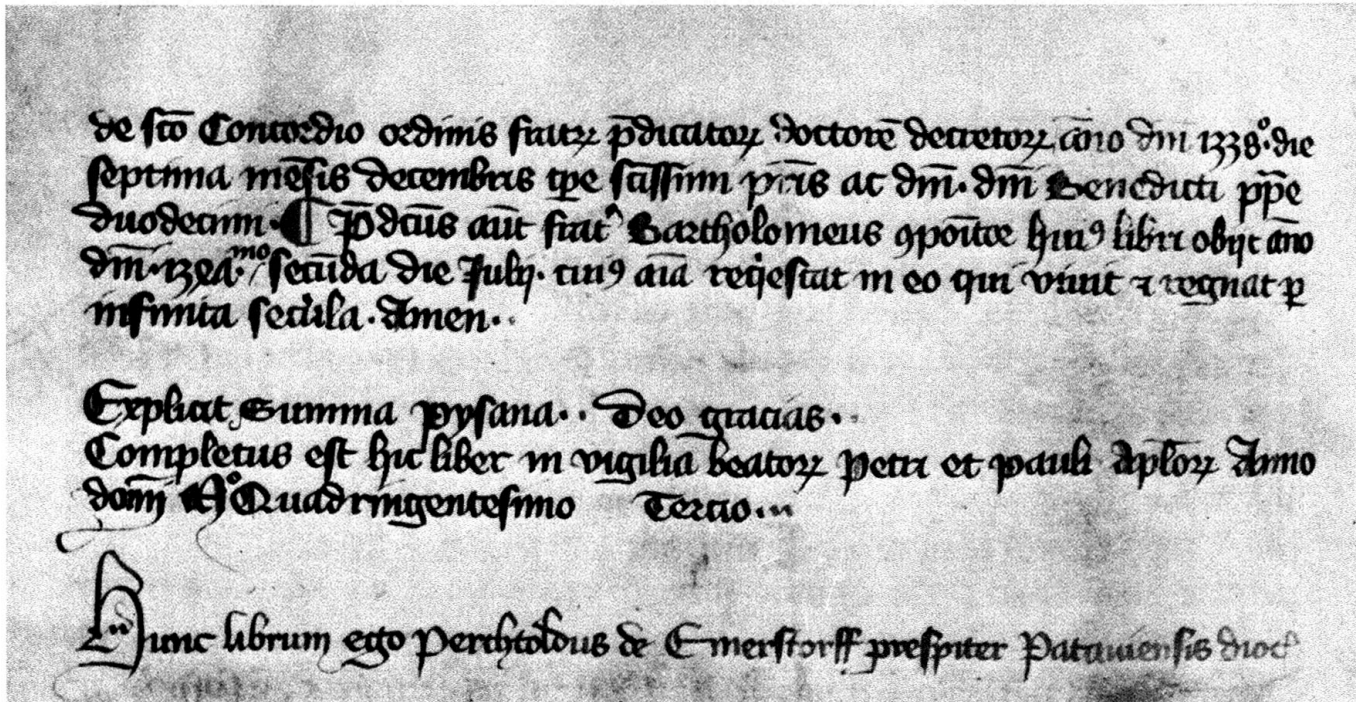 de sc̄o Concordio ordinis fratrꝝ p̄dicatorꝝ doctorē decretorꝝ an̄o dn̄i 1338º· die
septima mēsis decembris tp̄e sc̄issimi pr̄is ac dn̄i· dn̄i Benedicti pp̄e
duodecimi· ¶ P̄dcūs aūt frat͛ Bartholomeus ꝯpōitor huiꝰ libri obijt an̄o
dn̄i· ſecūda die Julij· cuiꝰ aīa reqͥescat in eo qui viuit ⁊ regnat ꝑ
infinita secula· Amen··
Explicit Summa pysana·· Deo gracias··
Completus est hic liber in vigilia beatorꝝ Petri et pauli Ap̄lorꝝ Anno
dom̄i Mº Quadringentesimo Tercio···
Hunc librum ego Perchtoldus de Emerstorff prespiter Patauiensis dioc̄